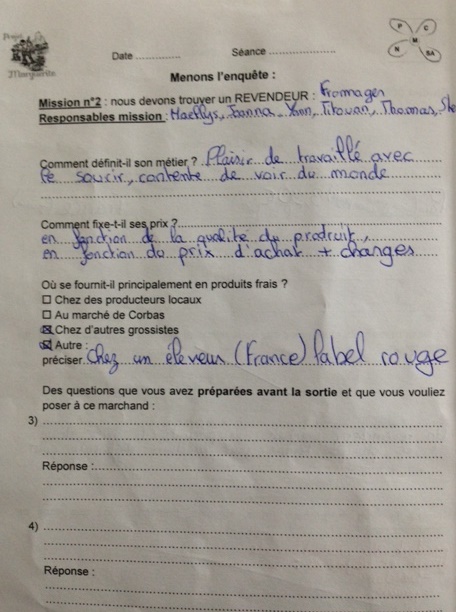 Projet
P C
M.
N SA
Marguerite
Date ............ Séance ..................
Menons l'enquête :
Mission n°2 : nous devons trouver un REVENDEUR : Fromager
Responsables mission : Maellys, Ioanna, Yvan, Titouan, Thomas,
Comment définit-il son métier ? Plaisir de travaillé avec
le sourir, contente de voir du monde
Comment fixe-t-il ses prix ?
en fonction de la qualite du produit,
en fonction du prix d'achat + changes
Où se fournit-il principalement en produits frais ?
☐ Chez des producteurs locaux
☐ Au marché de Corbas
☒ Chez d'autres grossistes
☒ Autre :
préciser. Chez un éleveur (France) label rouge
Des questions que vous avez préparées avant la sortie et que vous vouliez
poser à ce marchand :
3)
Réponse :
4)
Réponse :